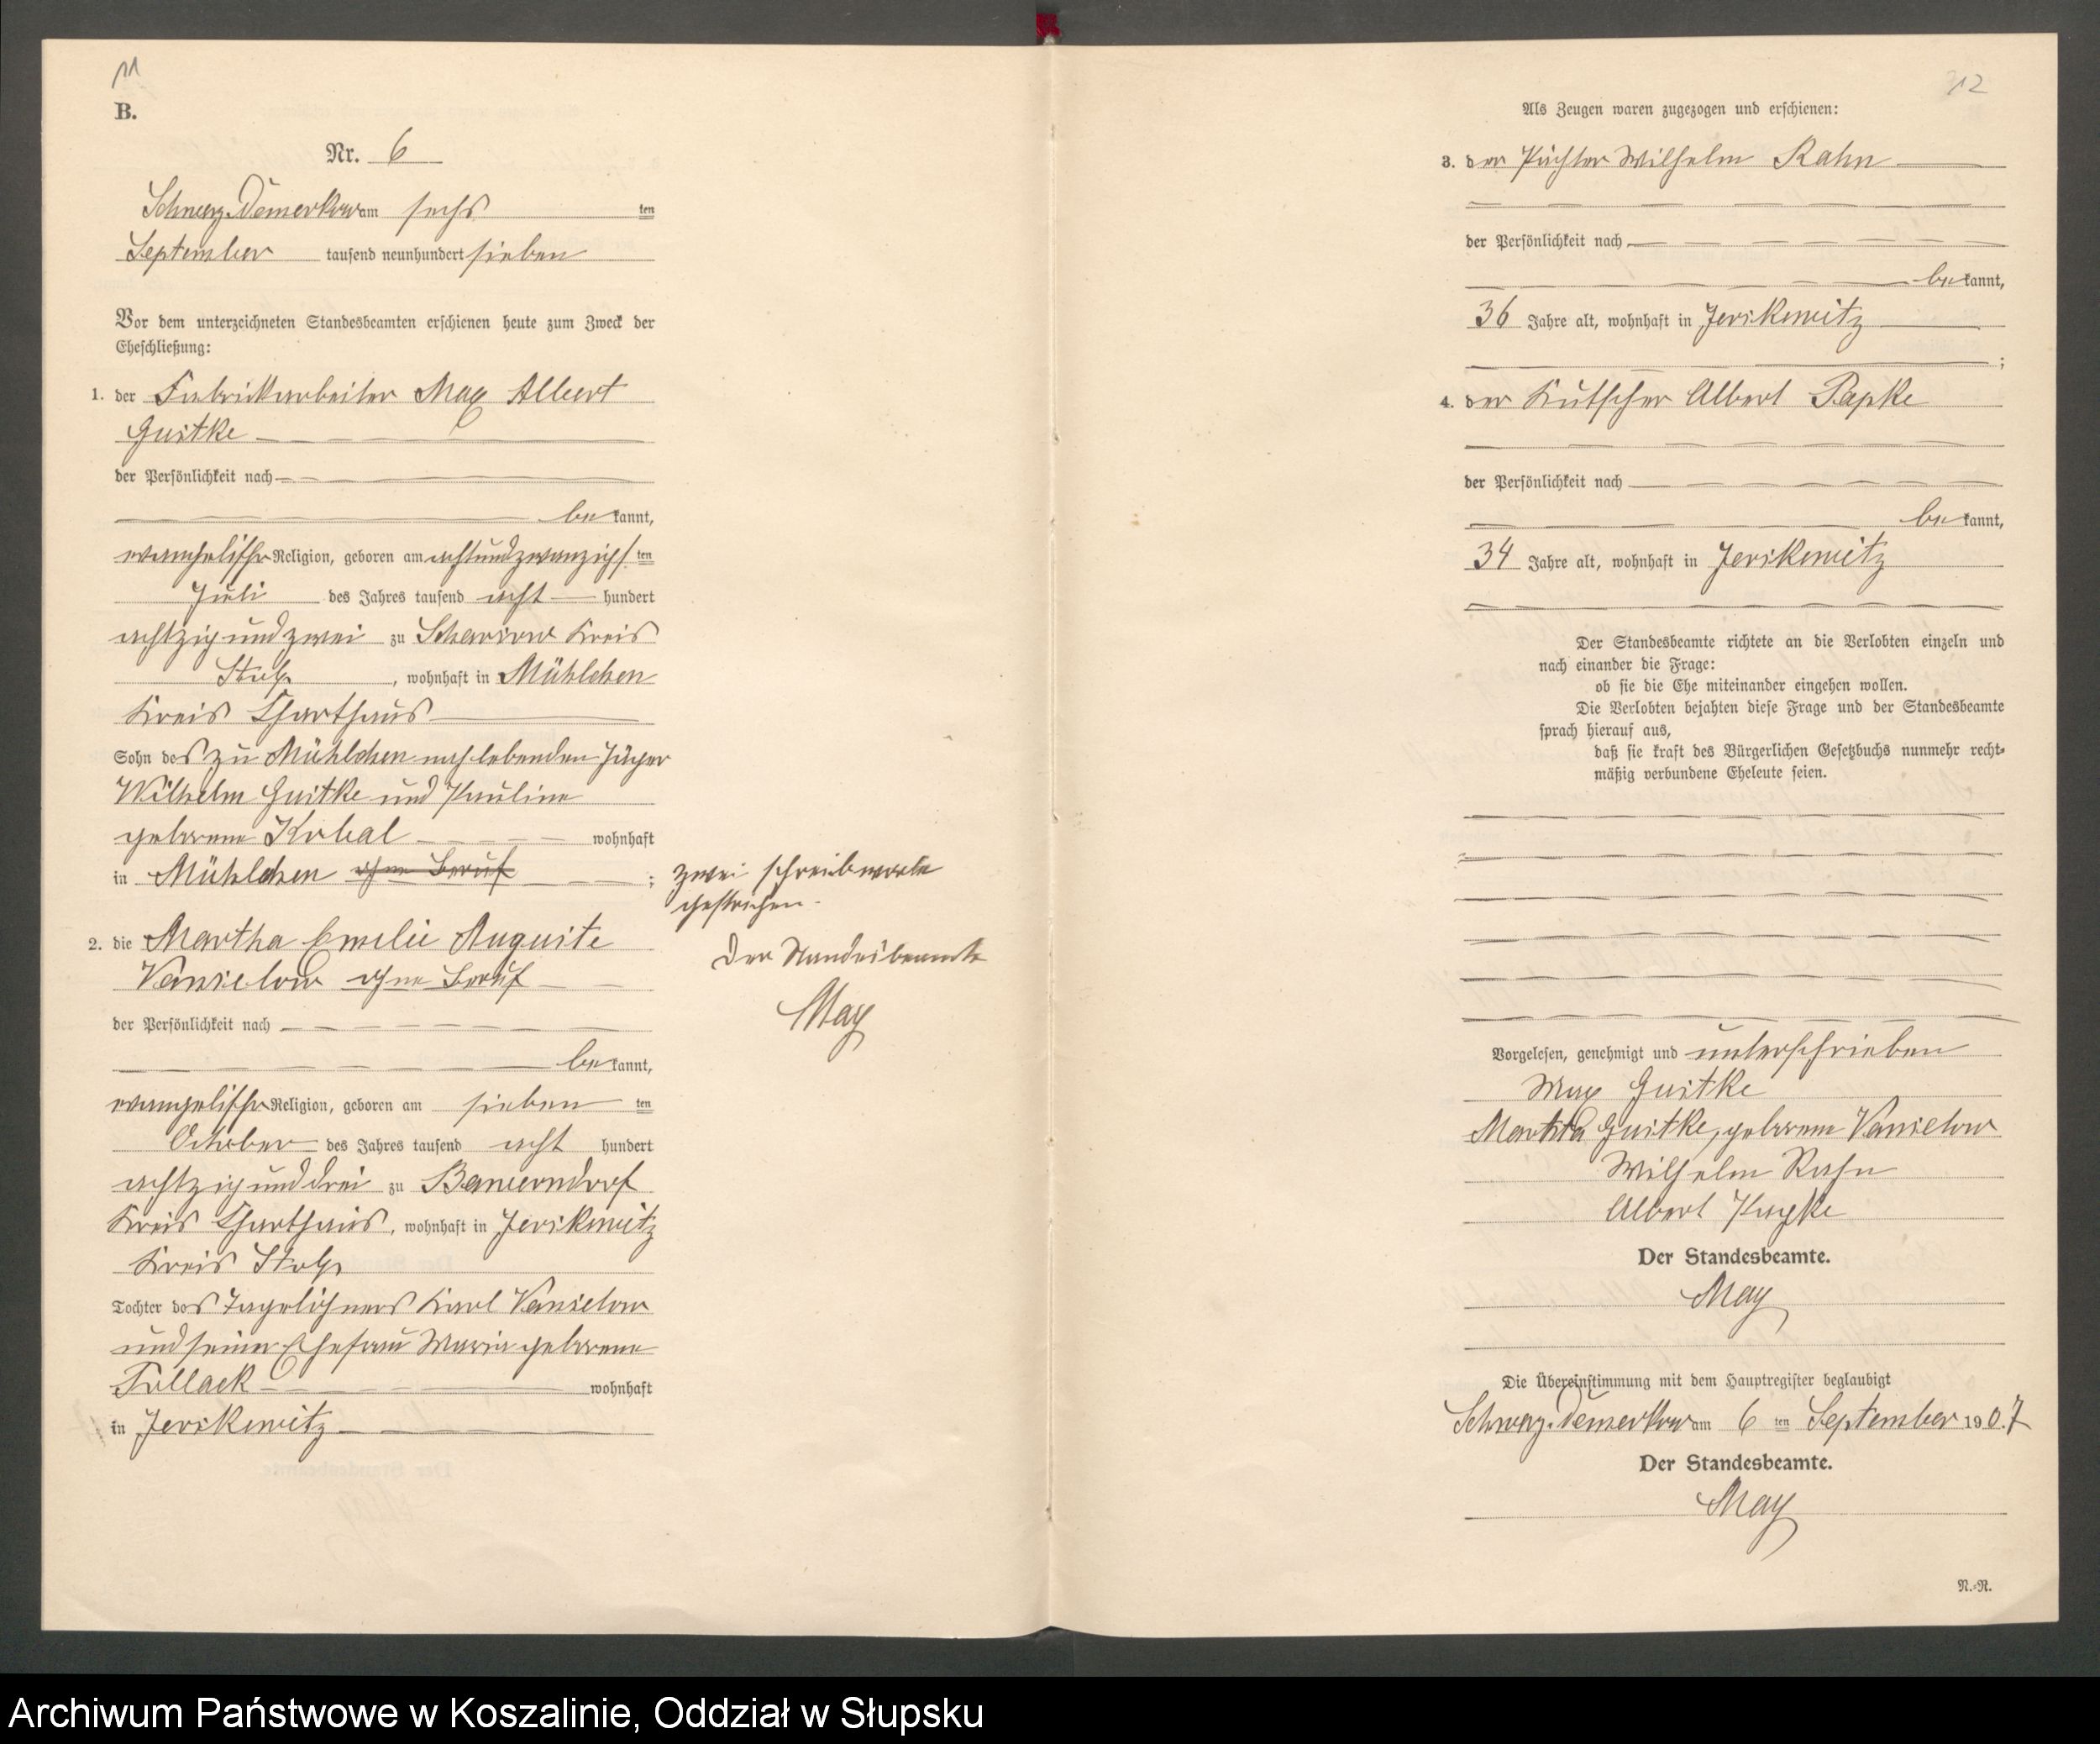 11
B.
Nr. 6
Schwarz-Damerkow am sechs ten
September tausend neunhundert sieben
Vor dem unterzeichneten Standesbeamten erschienen heute zum Zweck der
Eheschließung:
1. der Fabrikarbeiter Max Albert
Guitke
der Persönlichkeit nach
be kannt,
evangelischer Religion, geboren am achtundzwanzigsten
Juli des Jahres tausend acht hundert
achtzig und zwei zu Scharsow Kreis
Stolp, wohnhaft in Mühlchen
Kreis Charthaus
Sohn des zu Mühlchen noch lebenden Jäger
Wilhelm Guitke und Pauline
geborene Kubal wohnhaft
in Mühlchen ohne Beruf ;
zwei Schreibworte
gestrichen.
Der Standesbeamte
May
2. die Martha Emelie Auguste
Vanselow ohne Beruf
der Persönlichkeit nach
be kannt,
evangelischer Religion, geboren am sieben ten
October des Jahres tausend acht hundert
achtzig und drei zu
Kreis Charthaus, wohnhaft in Jerskewitz
Kreis Stolp
Tochter des Tagelöhners Karl Vanselow
und seiner Ehefrau Maria geborene
wohnhaft
in Jerskewitz
12
Als Zeugen waren zugezogen und erschienen:
3. der Pächter Wilhelm Rahn
der Persönlichkeit nach
be kannt,
36 Jahre alt, wohnhaft in Jerskewitz
;
4. der Kutscher Albert Papke
der Persönlichkeit nach
be kannt,
34 Jahre alt, wohnhaft in Jerskewitz
Der Standesbeamte richtete an die Verlobten einzeln und
nach einander die Frage:
ob sie die Ehe miteinander eingehen wollen.
Die Verlobten bejahten diese Frage und der Standesbeamte
sprach hierauf aus,
daß sie kraft des Bürgerlichen Gesetzbuchs nunmehr recht-
mäßig verbundene Eheleute seien.
Vorgelesen, genehmigt und unterschrieben
Max Guitke
Martha Guitke, geborene Vanselow
Wilhelm Rahn
Albert Papke
Der Standesbeamte.
May
Die Übereinstimmung mit dem Hauptregister beglaubigt
Schwarz-Damerkow am 6 ten September 1907
Der Standesbeamte.
May
N.-R.
Archiwum Państwowe w Koszalinie, Oddział w Słupsku